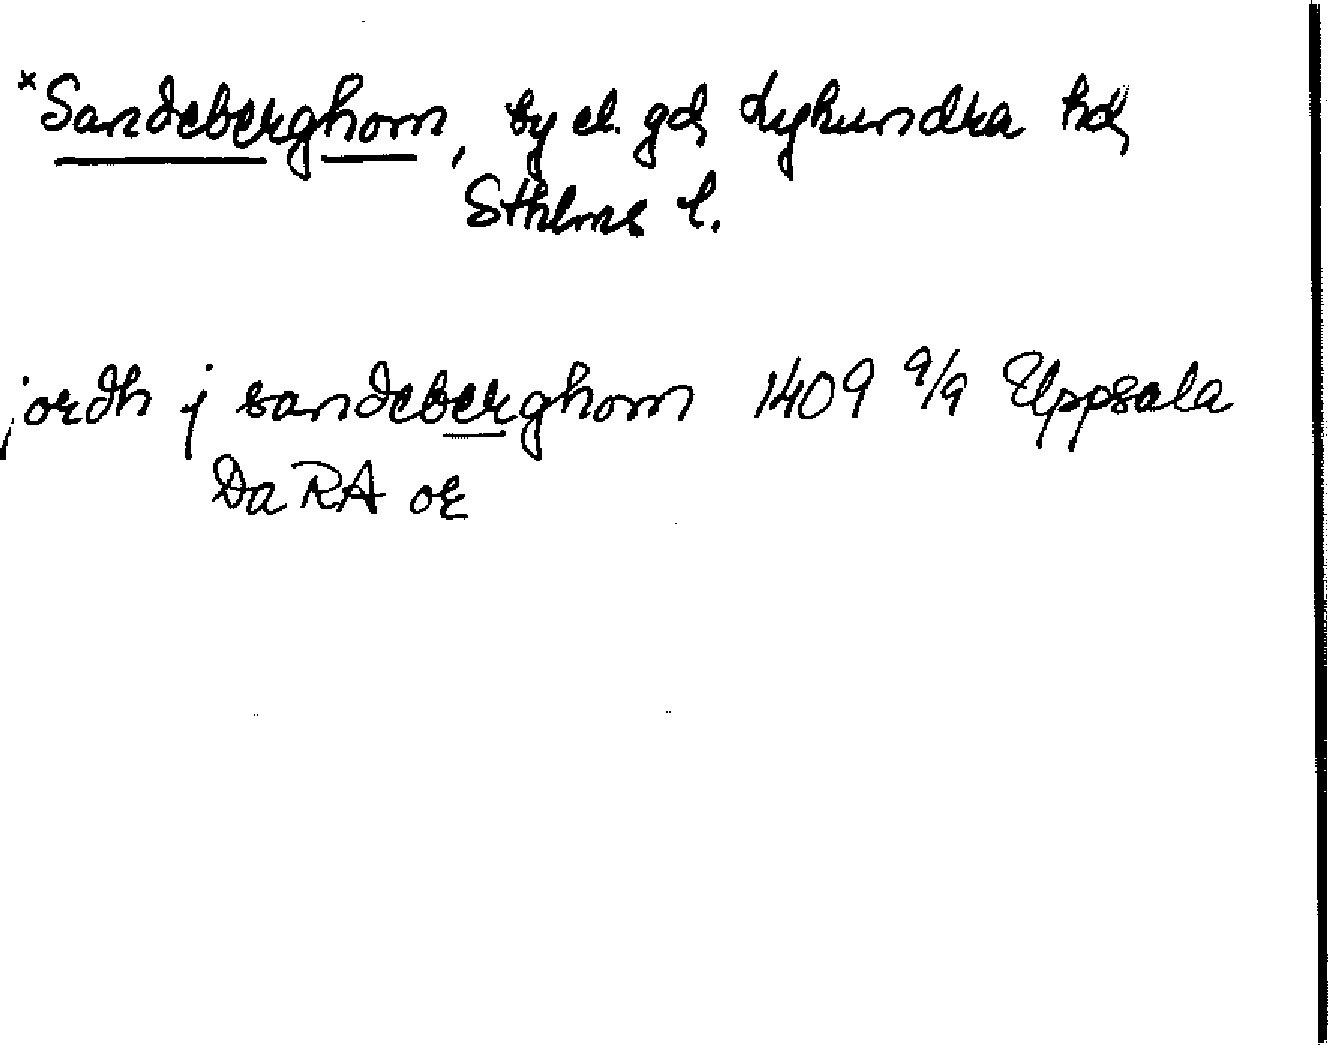 *Sandeberghorn, by el. gd Lyhundra hd
Sthlms l.
jordh j sandeberghorn 1409 9/9 Uppsala
Da RA or